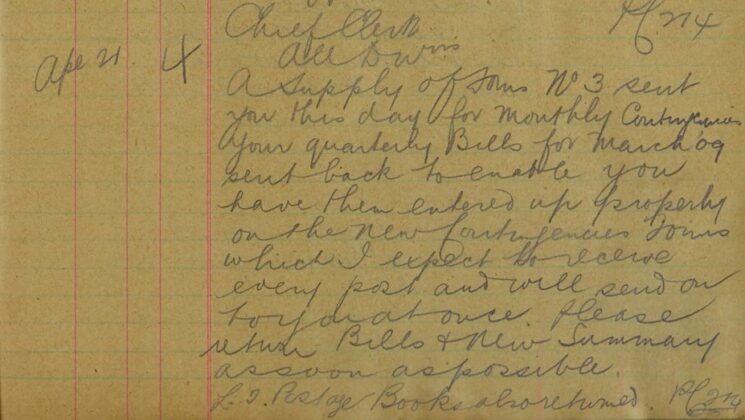 Chief Clerk
Ape 21 4 All Divns
A Supply of Forms No 3 sent
you this day for Monthly Contingencies
Your quarterly Bills for March 09
sent back to enable you
have them entered up properly
on the New Contingencies Forms
which I expect to receive
every post and will send on
to you at once. Please
return Bills & New Summary
as soon as possible.
Postage Books also returned.